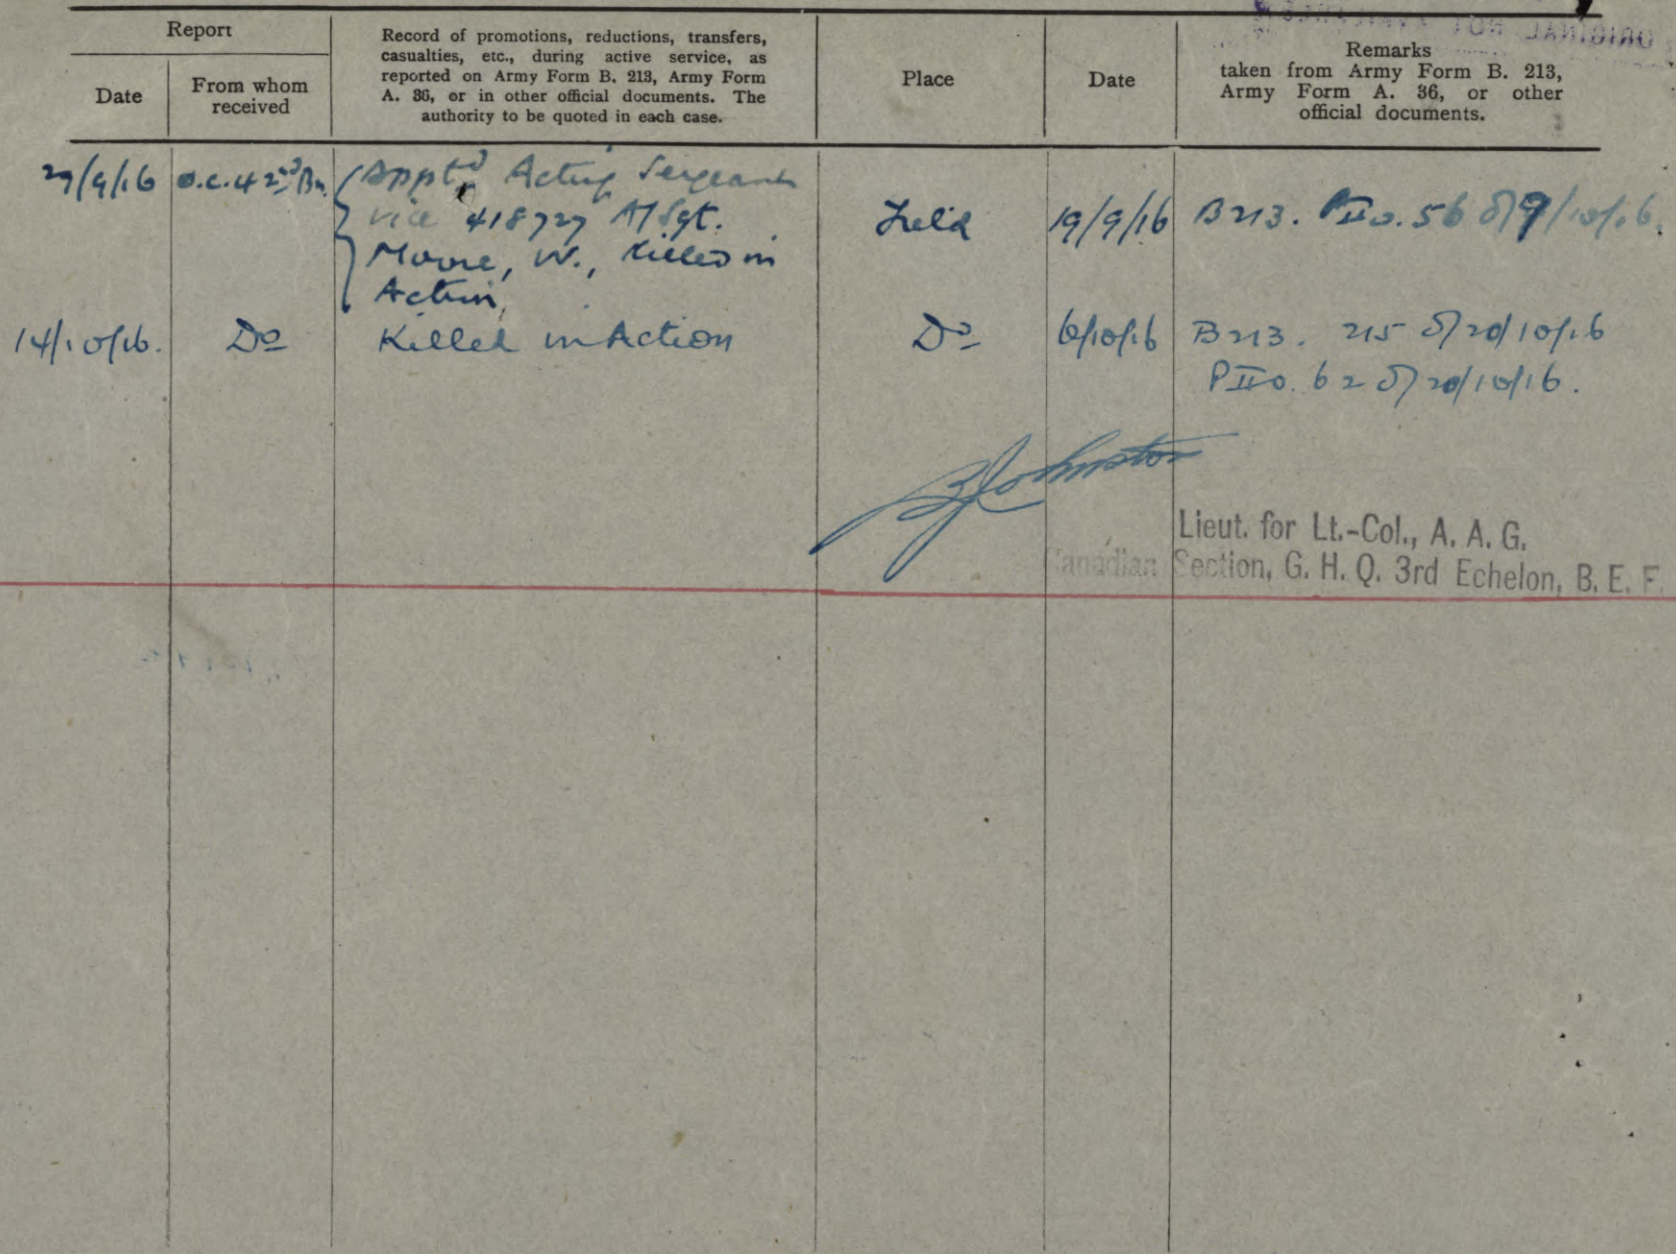 Report
Date
From whom
received
Record of promotions, reductions, transfers,
casualties, etc., during active service, as
reported on Army Form B. 213, Army Form
A. 36, or in other official documents. The
authority to be quoted in each case.
Place
Date
Remarks
taken from Army Form B. 213,
Army Form A. 36, or other
official documents.
29/9/16 O.C. 42nd Bn. Appt'd Acting Sergeant
vice 418727 A/Sgt. Field 19/9/16 B213. PIIo. 56 d/9/10/16.
Moore, W., Killed in
Action,
14/10/16. Do Killed in Action Do 6/10/16 B213. 215 d/20/10/16
PIIo. 62 d/20/10/16.
Johnston
Lieut. for Lt.-Col., A. A. G.
Canadian Section, G. H. Q. 3rd Echelon, B. E. F.